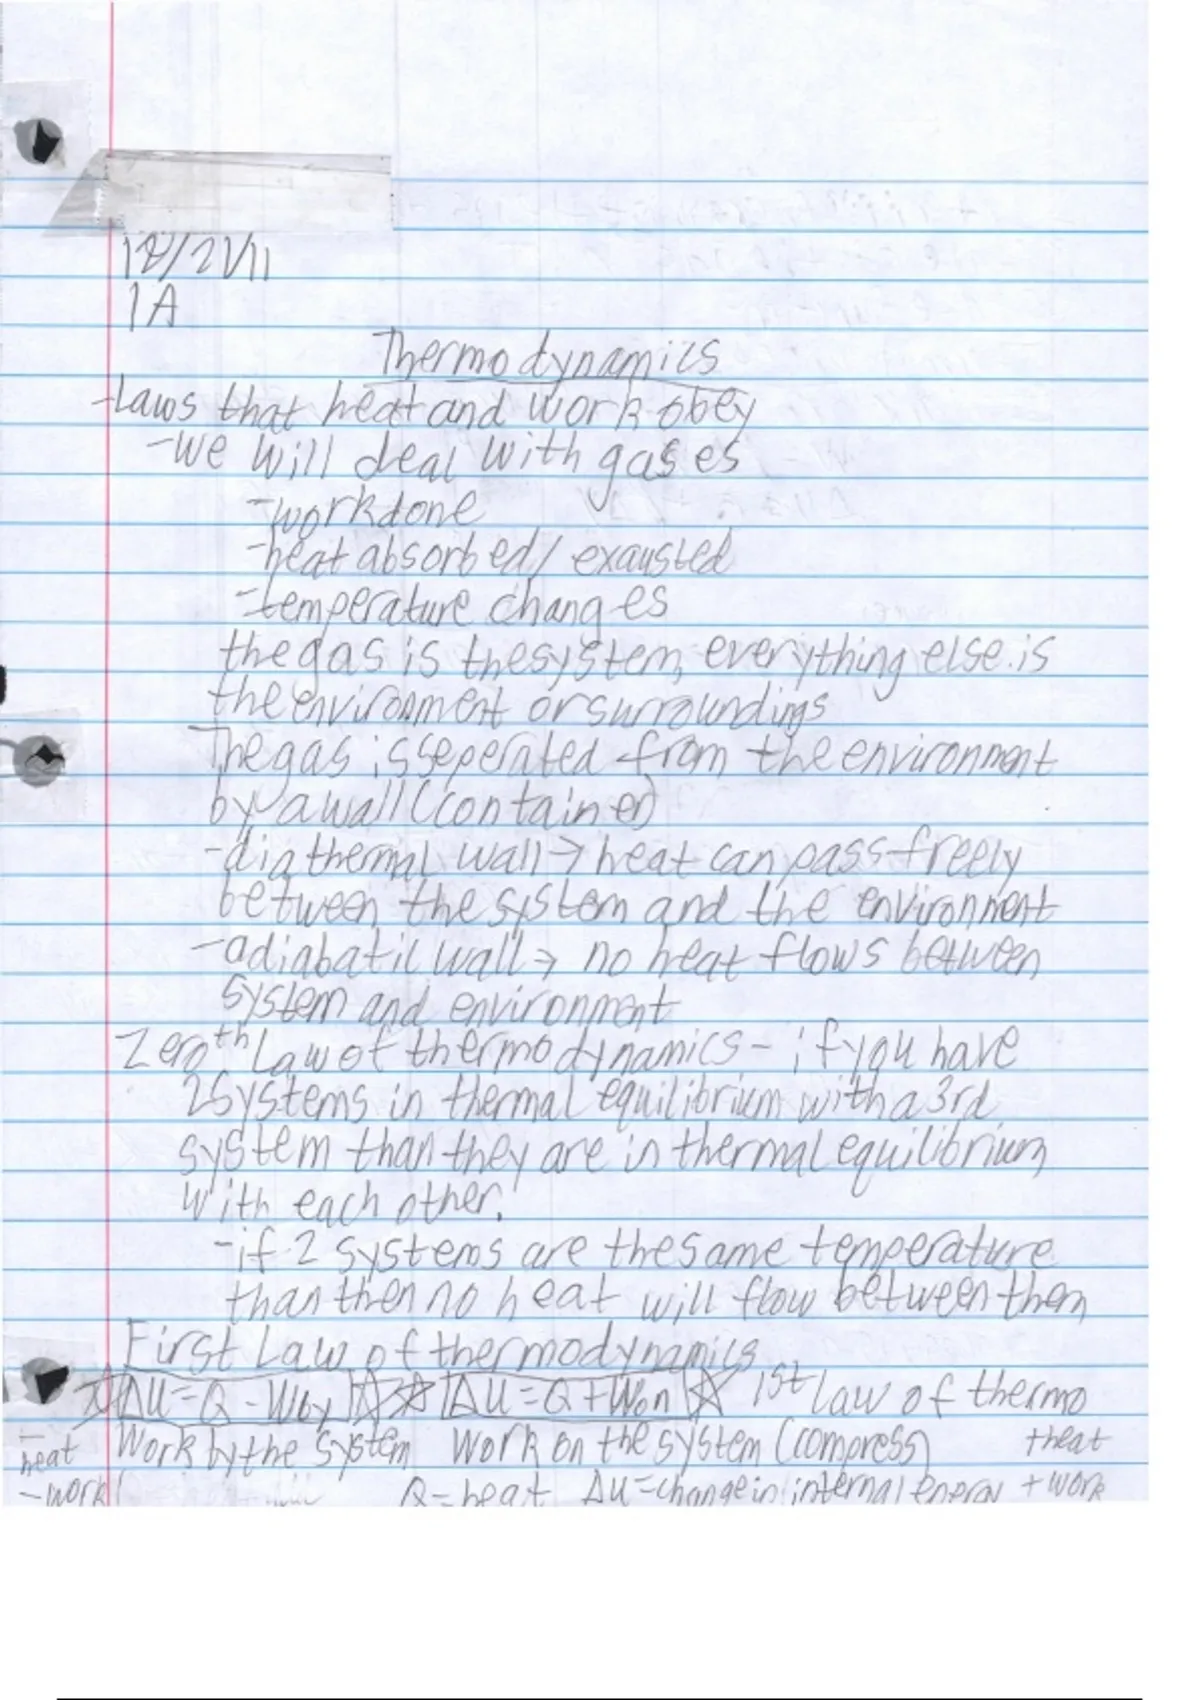 12/21/11
1A
Thermodynamics
-Laws that heat and work obey
-we will deal with gases
-work done
-heat absorbed/exausted
-temperature changes
the gas is the system, everything else is
the environment or surroundings
The gas is seperated from the environment
by a wall (container)
-diathermal wall → heat can pass freely
between the system and the environment
-adiabatic wall → no heat flows between
system and environment
Zeroth Law of thermodynamics - if you have
2 systems in thermal equilibrium with a 3rd
system than they are in thermal equilibrium
with each other.
-if 2 systems are the same temperature
than then no heat will flow between them
First Law of thermodynamics
☆ ΔU=Q-Wby ☆ ☆ ΔU=Q+Won ☆ 1st law of thermo
-heat Work by the system Work on the system (compress) +heat
-work Q=heat ΔU=change in internal energy +work